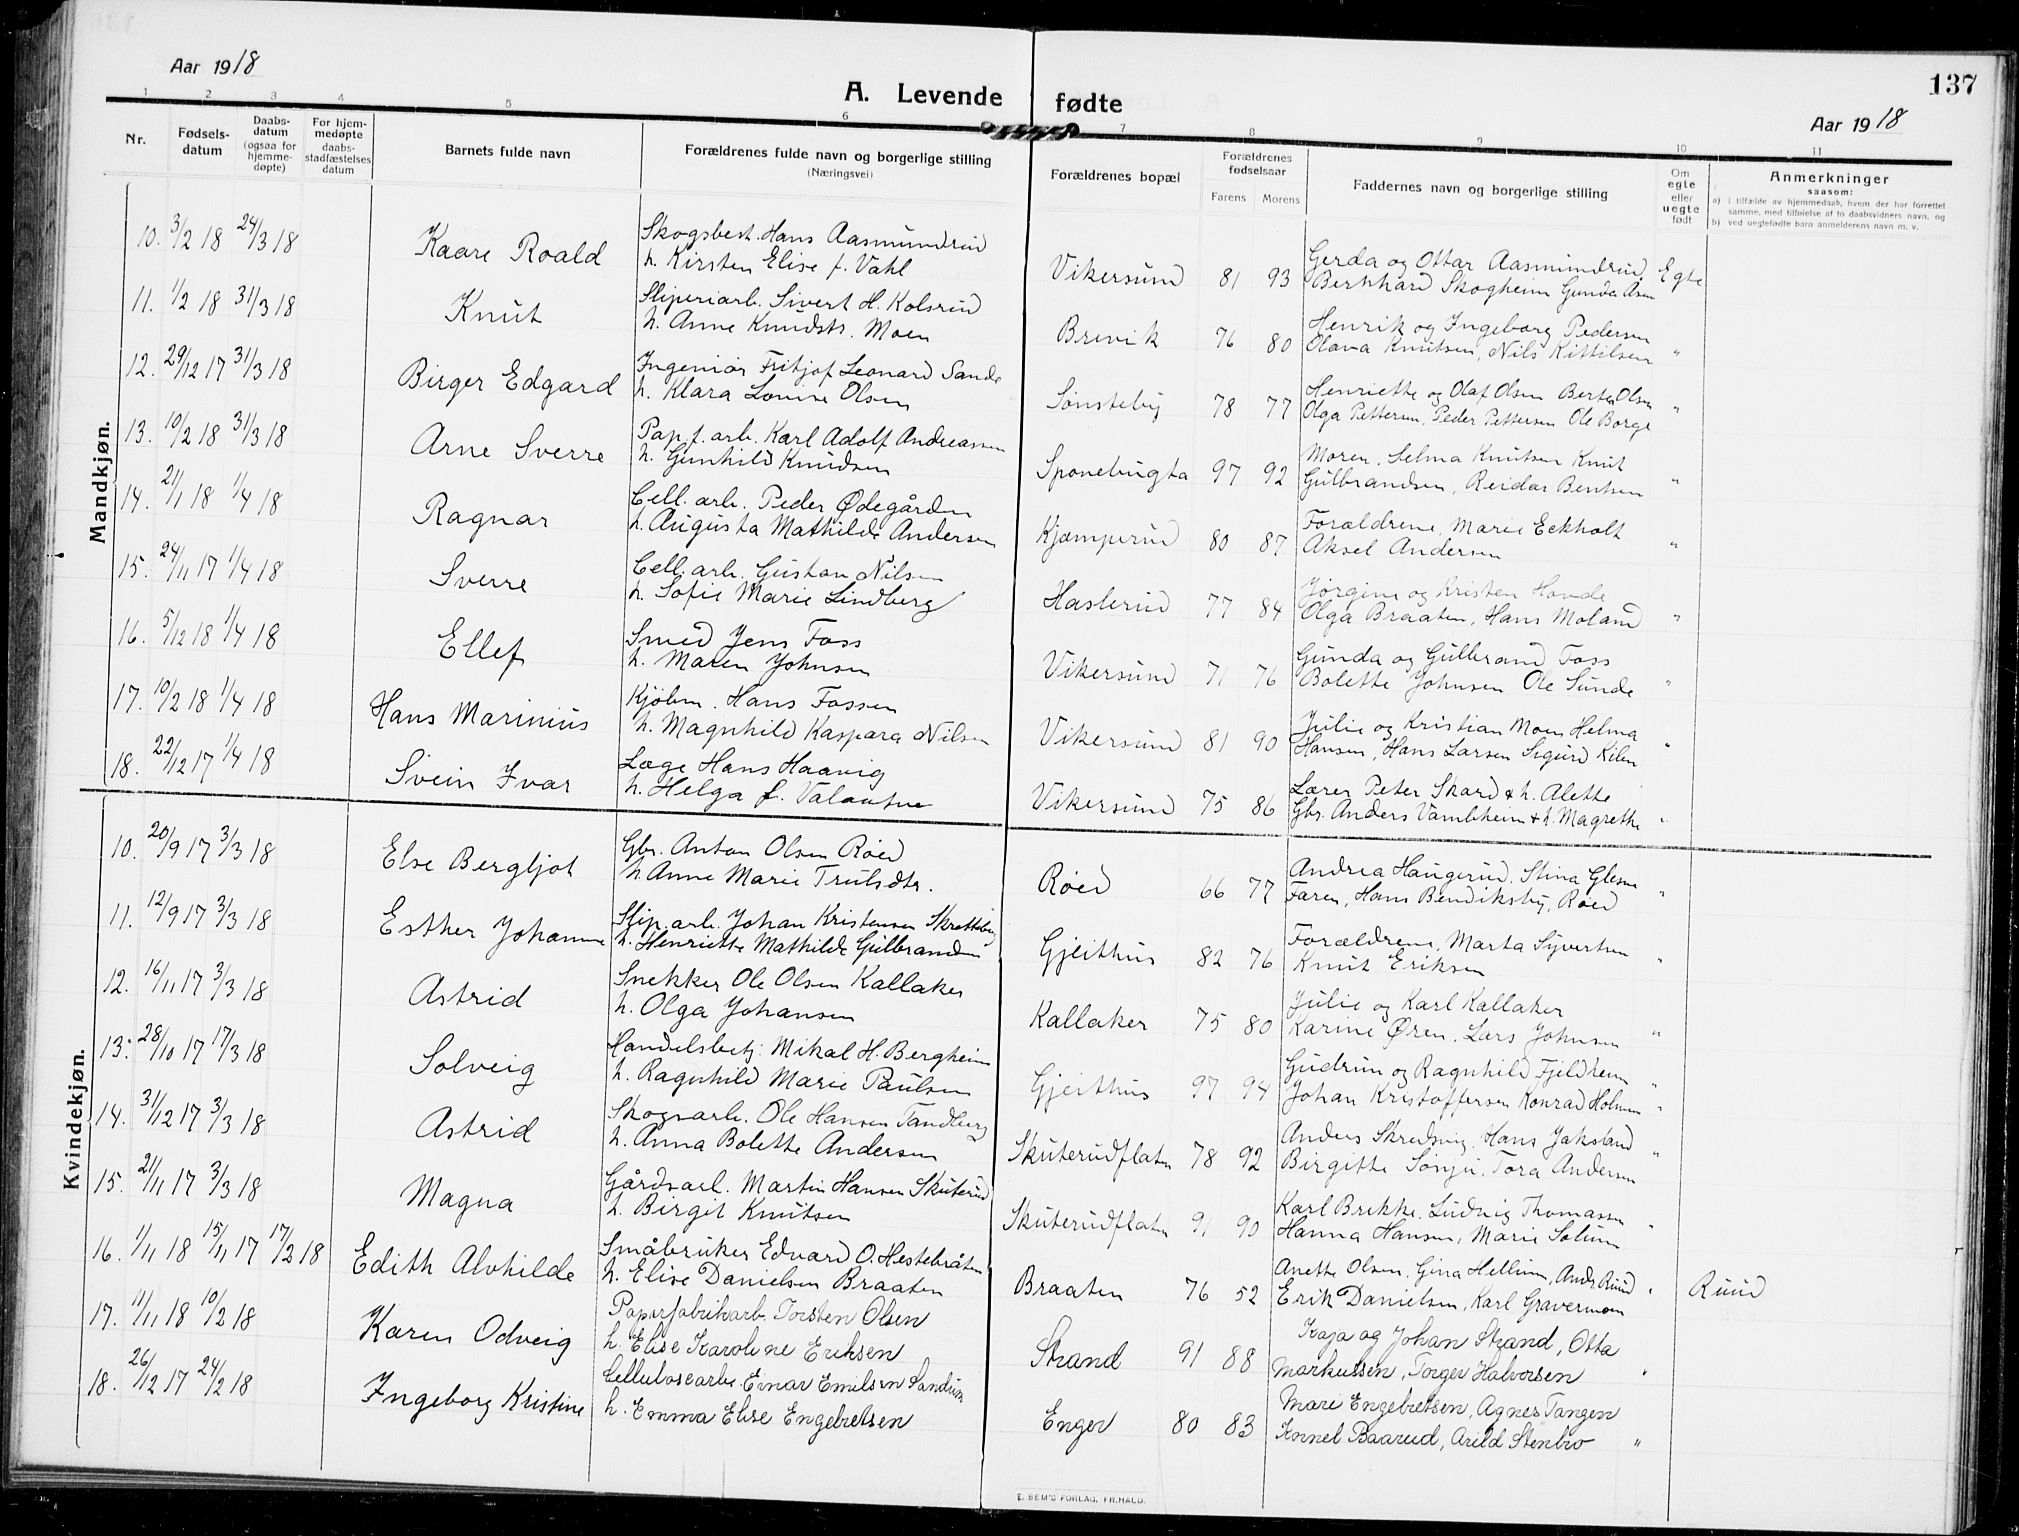 Aar 1918
A. Levende fødte
137
Aar 1918
1 2 3 4 5 6 7 8 9 10 11
Nr.
Fødsels-
datum
Daabs-
datum
(ogsaa for
hjemme-
døpte)
For hjem-
medøpte
daabs-
stadfæstelses
datum
Barnets fulde navn
Forældrenes fulde navn og borgerlige stilling
(Næringsvei)
Forældrenes bopæl
Forældrenes
fødselsaar
Farens Morens
Faddernes navn og borgerlige stilling
Om
egte
eller
uegte
født
Anmerkninger
saasom:
a) i tilfælde av hjemmedaab, hvem der har forrettet
samme, med tilføielse af to daabsvidners navn, og
b) ved uegtefødte barn anmelderens navn m. v.
Mandkjøn.
10. 3/2 18 24/3 18 Kaare Roald
Skogsbest. Hans Aasmundrud
h. Kirsten Elise f. Vahl
Vikersund 81 93
Gerda og Ottar Aasmundrud, Egte
Bernhard Skogheim Gunda Asen
11. 1/2 18 31/3 18 Knut
Sliperiarb. Sivert H. Kolsrud
h. Anne Knudsts. Moen
Brevik 76 80
Henrik og Ingeborg Pedersen
Olava Knutsen, Nils Kittilsen "
12. 29/12 17 31/3 18 Birger Edgard
Ingeniør Fritjof Leonard Sande
h. Klara Lovise Olsen
Sønsteby 78 77
Henriette og Olaf Olsen Berta Olsen
Olga Pettersen, Peder Pettersen Ole Borge "
13. 10/2 18 31/3 18 Arne Sverre
Pap. f. arb. Karl Adolf Andreassen
h. Gunhild Knudsen
Sponebugta 97 92
Moren, Selma Knutsen Knut
Gulbrandsen, Reidar Bentsen "
14. 21/1 18 1/4 18 Ragnar
Cell. arb. Peder Ødegården
h. Augusta Mathilde Andersen
Kjæmperud 80 87
Forældrene, Marie Eckholt
Aksel Andersen "
15. 24/11 17 1/4 18 Sverre
Cell. arb. Gustav Nilsen
h. Sofie Marie Lindberg
Haslerud 77 84
Jørgine og Kristen Hovde
Olga Braaten, Hans Moland "
16. 5/12 18 1/4 18 Ellef
Smed Jens Foss
h. Maren Johnsen
Vikersund 71 76
Gunda og Gulbrand Foss
Bolette Johnsen Ole Sunde "
17. 10/2 18 1/4 18 Hans Marinius
Kjøbm. Hans Fossen
h. Magnhild Kaspara Nilsen
Vikersund 81 90
Julie og Kristian Moen Helma
Hansen, Hans Larsen Sigurd Kilen "
18. 22/12 17 1/4 18 Svein Ivar
Læge Hans Haavig
h. Helga f.
Vikersund 75 86
Lærer Peter Skard & h. Alette
Gbr. Anders Vambheim & h. Magrethe "
Kvindekjøn.
10. 20/9 17 3/3 18 Else Bergljot
Gbr. Anton Olsen Røed
h. Anne Marie Trulsdtr.
Røed 66 77
Andrea Haugerud, Stina Glesne
Faren, Hans Bendiksby, Røed "
11. 12/9 17 3/3 18 Esther Johanne
Slip. arb. Johan Kristensen
h. Henriette Mathilde Gulbrandsen
Gjeithus 82 76
Forældrene, Marta Syvertsen
Knut Eriksen "
12. 16/11 17 3/3 18 Astrid
Snekker Ole Olsen Kallaker
h. Olga Johansen
Kallaker 75 80
Julie og Karl Kallaker
Karine Øren, Lars Johnsen "
13. 28/10 17 17/3 18 Solveig
Handelsbetj. Mikal H. Bergheim
h. Ragnhild Marie Paulsen
Gjeithus 97 94
Gudrun og Ragnhild Fjeldheim "
Johan Kristoffersen Konrad Holmen "
14. 31/12 17 3/3 18 Astrid
Skogsarb. Ole Hansen Tandberg
h. Anna Bolette Andersen
Skuterudflaten 78 92
Anders Skredsvig, Hans Jaksland
Birgitte Sønju, Tora Andersen "
15. 21/11 17 3/3 18 Magna
Gårdsarb. Martin Hansen Skuterud
h. Birgit Knutsen
Skuterudflaten 91 90
Karl Brekke, Ludvig Thomassen
Hanna Hansen, Marie Solum "
16. 1/11 18 15/11 17 17/2 18 Edith Alvhilde
Småbruker Edvard O. Hestebråten
h. Elise Danielsen Braaten
Braaten 76 52
Anette Olsen, Gina Hellum, Andr. Ruud "
Erik Danielsen, Karl Gravermoen
Ruud
17. 11/11 18 10/2 18 Karen Odveig
Papirfabrikarb. Torsten Olsen
h. Elise Karoline Eriksen
Strand 91 88
Kaja og Johan Strand, Otta
Markussen, Torger Halvorsen "
18. 26/12 17 24/2 18 Ingeborg Kristine
Cellulosearb. Einar Emilsen Sandum
h. Emma Elise Engebretsen
Enger 80 83
Mari Engebretsen, Agnes Tangen
Kornel Baarud, Arild Stenbro "
E. SEM'S FORLAG, FR.HALD.